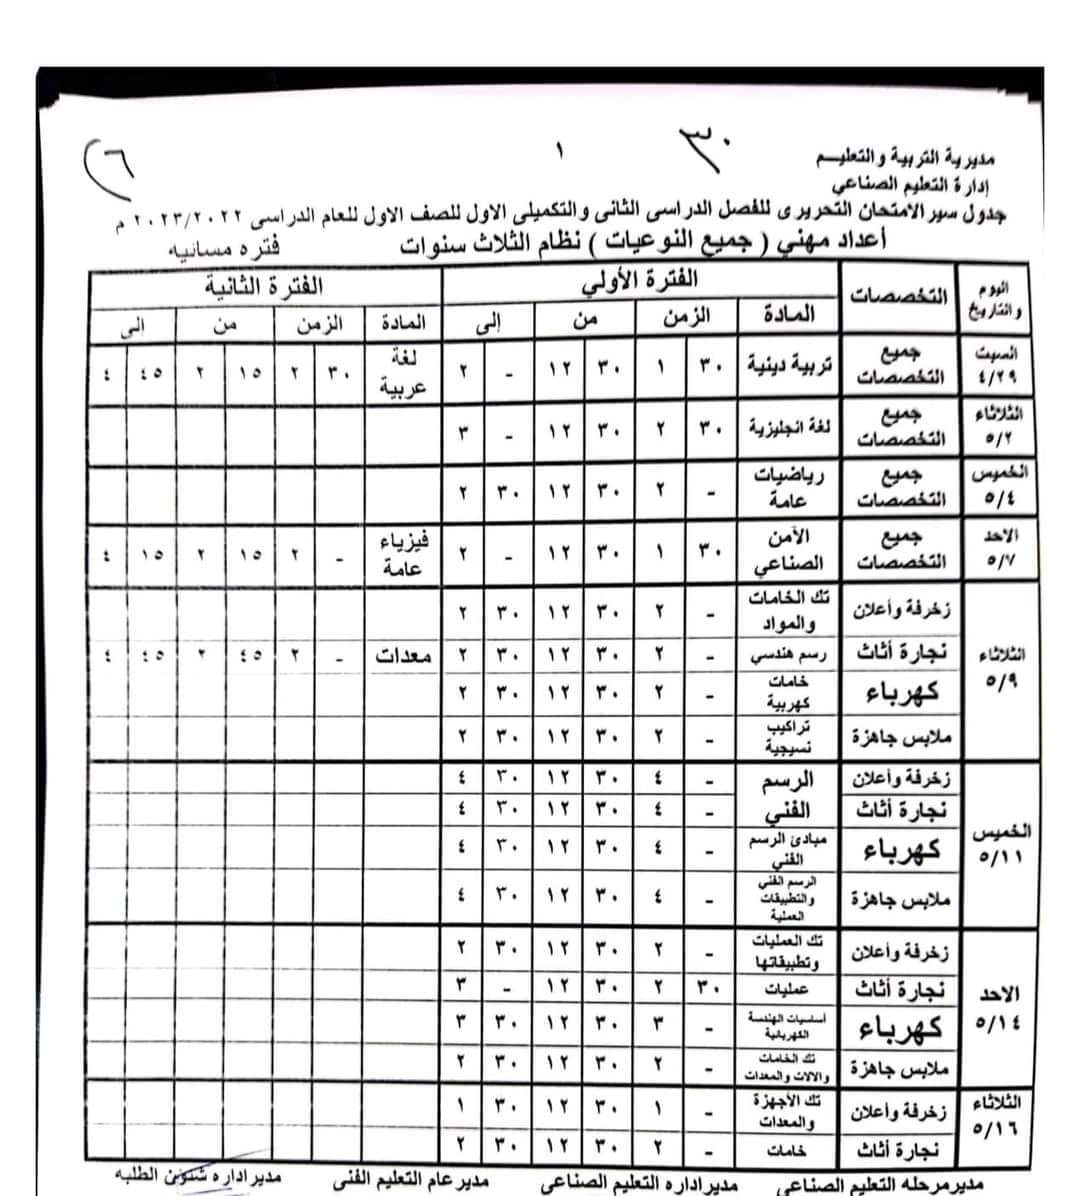 ٣٠
١
٦
مديرية التربية والتعليم
إدارة التعليم الصناعي
جدول سير الامتحان التحريرى للفصل الدراسى الثانى والتكميلى الاول للصف الاول للعام الدراسى ٢٠٢٣/٢٠٢٢ م
أعداد مهني ( جميع النوعيات ) نظام الثلاث سنوات فتره مسائيه
اليوم والتاريخ التخصصات الفترة الأولي الفترة الثانية
المادة الزمن من إلى المادة الزمن من الى
السبت ٤/٢٩ جميع التخصصات تربية دينية ٣٠ ١ ٣٠ ١٢ - ٢ لغة عربية ٣٠ ٢ ١٥ ٢ ٤٥ ٤
الثلاثاء ٥/٢ جميع التخصصات لغة انجليزية ٣٠ ٢ ٣٠ ١٢ - ٣
الخميس ٥/٤ جميع التخصصات رياضيات عامة - ٢ ٣٠ ١٢ ٣٠ ٢
الاحد ٥/٧ جميع التخصصات الأمن الصناعي ٣٠ ١ ٣٠ ١٢ - ٢ فيزياء عامة - ٢ ١٥ ٢ ١٥ ٤
الثلاثاء ٥/٩ زخرفة وأعلان تك الخامات والمواد - ٢ ٣٠ ١٢ ٣٠ ٢
نجارة أثاث رسم هندسي - ٢ ٣٠ ١٢ ٣٠ ٢ معدات - ٢ ٤٥ ٢ ٤٥ ٤
كهرباء خامات كهربية - ٢ ٣٠ ١٢ ٣٠ ٢
ملابس جاهزة تراكيب نسيجية - ٢ ٣٠ ١٢ ٣٠ ٢
الخميس ٥/١١ زخرفة وأعلان الرسم الفني - ٤ ٣٠ ١٢ ٣٠ ٤
نجارة أثاث - ٤ ٣٠ ١٢ ٣٠ ٤
كهرباء مبادئ الرسم الفني - ٤ ٣٠ ١٢ ٣٠ ٤
ملابس جاهزة الرسم الفني والتطبيقات العملية - ٤ ٣٠ ١٢ ٣٠ ٤
الاحد ٥/١٤ زخرفة وأعلان تك العمليات وتطبيقاتها - ٢ ٣٠ ١٢ ٣٠ ٢
نجارة أثاث عمليات ٣٠ ٢ ٣٠ ١٢ - ٣
كهرباء أساسيات الهندسة الكهربائية - ٣ ٣٠ ١٢ ٣٠ ٣
ملابس جاهزة تك الخامات والالات والمعدات - ٢ ٣٠ ١٢ ٣٠ ٢
الثلاثاء ٥/١٦ زخرفة وأعلان تك الأجهزة والمعدات - ١ ٣٠ ١٢ ٣٠ ١
نجارة أثاث خامات - ٢ ٣٠ ١٢ ٣٠ ٢
مدير مرحله التعليم الصناعي مدير اداره التعليم الصناعي مدير عام التعليم الفنى مدير اداره شئون الطلبه